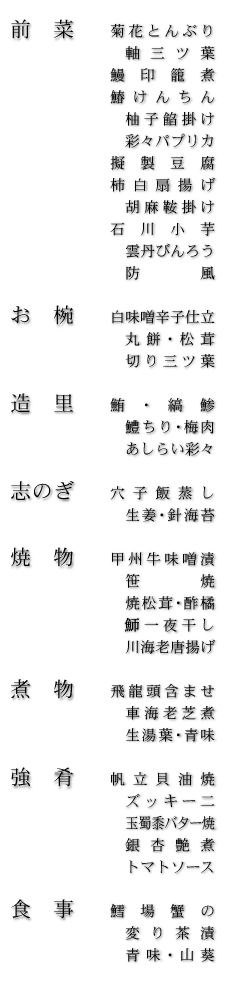 前菜 菊花とんぶり
軸三ツ葉
鰻印籠煮
鰆けんちん
柚子餡掛け
彩々パプリカ
擬製豆腐
柿白扇揚げ
胡麻鞍掛け
石川小芋
雲丹びんろう
防風
お椀 白味噌辛子仕立
丸餅・松茸
切り三ツ葉
造里 鮪・縞鯵
鱧ちり・梅肉
あしらい彩々
志のぎ 穴子飯蒸し
生姜・針海苔
焼物 甲州牛味噌漬
笹焼
焼松茸・酢橘
鰤一夜干し
川海老唐揚げ
煮物 飛龍頭含ませ
車海老芝煮
生湯葉・青味
強肴 帆立貝油焼
ズッキー二
玉蜀黍バター焼
銀杏艶煮
トマトソース
食事 鱈場蟹の
変り茶漬
青味・山葵